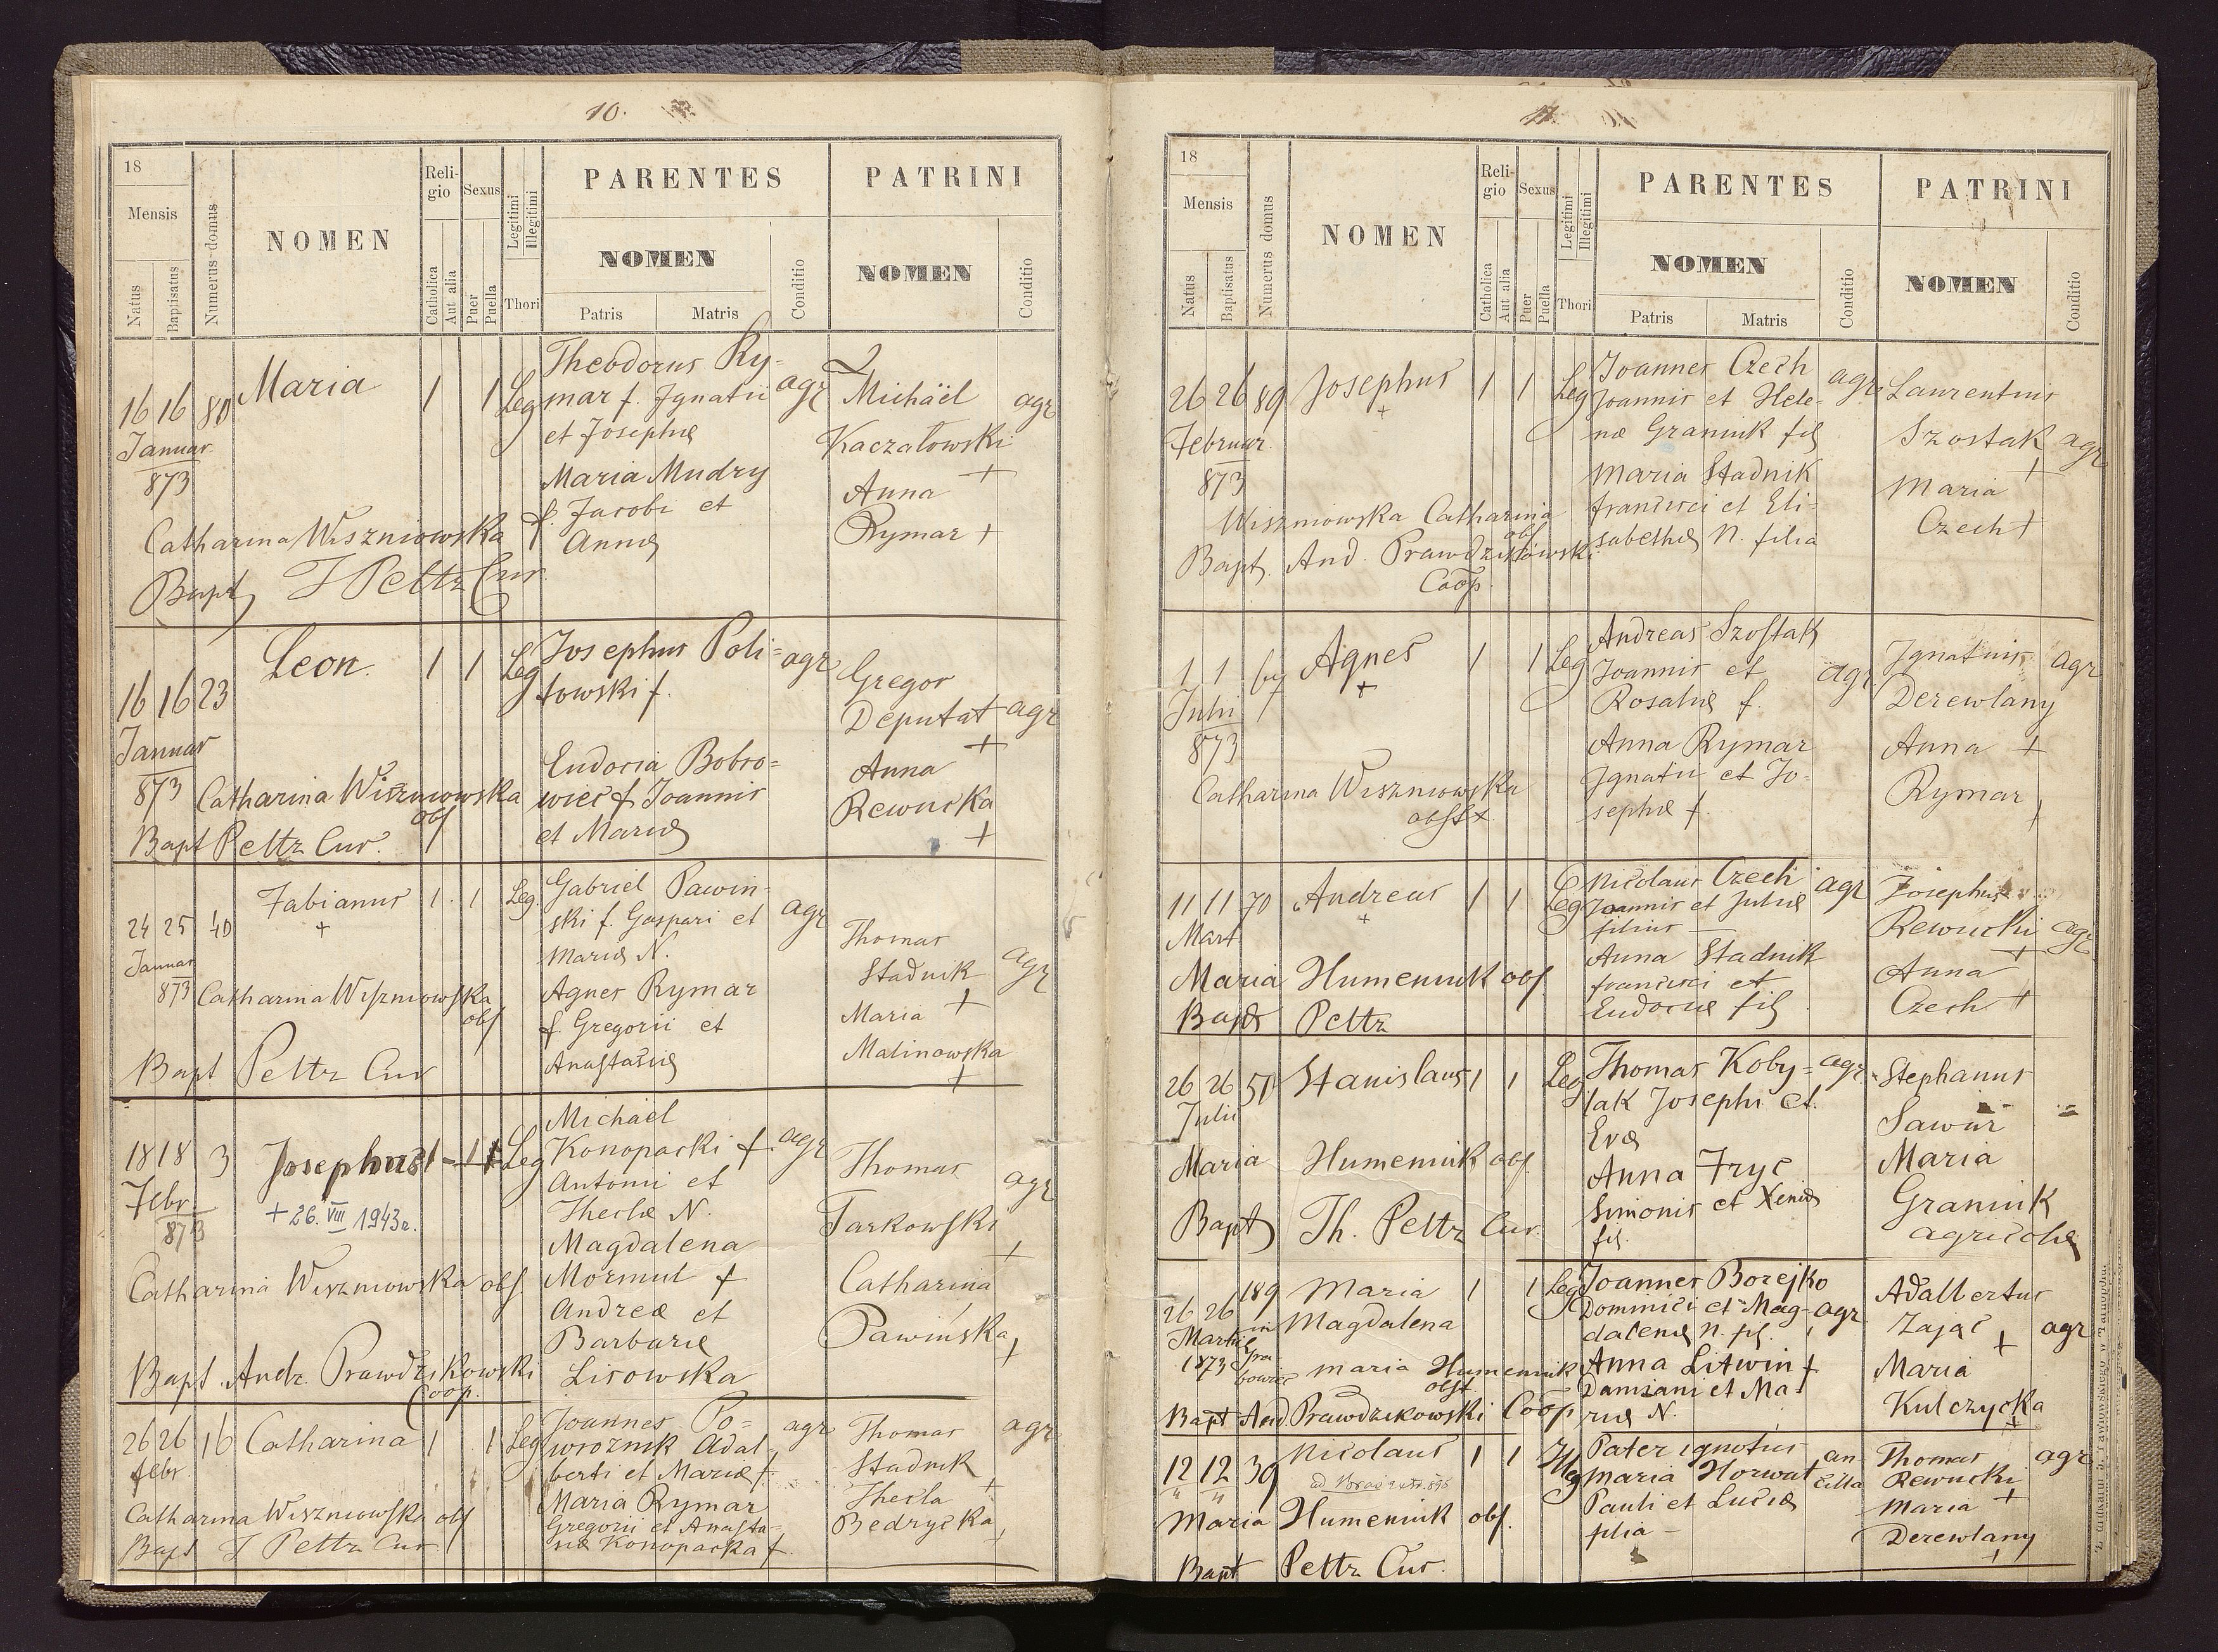 10.
18
Mensis
Natus
Baptisatus
Numerus domus
NOMEN
Reli-
gio
Catholica
Aut alia
Sexus
Puer
Puella
Legitimi
Illegitimi
Thori
PARENTES
NOMEN
Patris
Matris
Conditio
PATRINI
NOMEN
Conditio
16 16 80 Maria 1 1 Leg
Januar
873
Theodorus Ry-
mar f. Ignatii agr
et Josephæ
Maria Mudry
f. Jacobi et
Annæ
Michäel agr
Kaczałowski
+
Anna
Rymar +
Catharina Wiszniowska
Bapt J Peltz Cur
16 16 23 Leon. 1 1 Leg
Januar
873
Josephus Poli- agr
towski f.
Eudocia Bobro-
wiec f Joannis
et Mariæ
Gregor
Deputat agr
+
Anna
Rewucka
+
Catharina Wiszniowska
obs
Bapt Peltz Cur.
24 25 40 Fabianus 1. 1 Leg.
+
Januar
873
Gabriel Pawin-
ski f. Gaspari et agr
Mariæ N.
Agnes Rymar
f. Gregorii et
Anastasiæ
Thomas
Stadnik agr
+
Maria
Malinowska
+
Catharina Wiszniowska
obs
Bapt Peltz Cur
18 18 3 Josephus 1 - 1 Leg
Febr.
873
+ 26. VIII 1943 r.
Michael
Konopacki f. agr
Antonii et
Theclæ N.
Magdalena
Mormul f
Andreæ et
Barbaræ
Lisowska
Thomas agr
Tarkowski
+
Catharina
Pawińska
+
Catharina Wiszniowska obs.
Bapt. Andr. Prawdzikowski
Coop.
26 26 16 Catharina 1 1 Leg
febr.
Joannes Po- agr
wroznik Adal-
berti et Mariæ f.
Maria Rymar
Gregorii et Anasta-
siæ Konopacka f.
Thomas agr
Stadnik
+
Thecla
Bedrycka
+
Catharina Wiszniowska obs
Bapt J Peltz Cur
11.
18
Mensis
Natus
Baptisatus
Numerus domus
NOMEN
Reli-
gio
Catholica
Aut alia
Sexus
Puer
Puella
Legitimi
Illegitimi
Thori
PARENTES
NOMEN
Patris
Matris
Conditio
PATRINI
NOMEN
Conditio
26 26 89 Josephus 1 1 Leg
+
Februar.
873
Joannes Czech agr
Joannis et Hele-
næ Graniuk fil
Maria Stadnik
francisci et Eli-
sabethæ N. filia
Laurentius
Szostak agr
+
Maria
Czech +
Wiszniowska Catharina
obs
Bapt. And. Prawdzikowski
Coop.
1 1 Agnes 1 1 Leg
+
Julii
873
Andreas Szostak
Joannis et agr
Rosaliæ f.
Anna Rymar
Ignatii et Jo-
sephæ f.
Ignatius agr
Derewlany
Anna +
Rymar
+
Catharina Wiszniowska
obst
11 11 70 Andreas 1 1 Leg
+
Mart
Nicolaus Czech agr
Joannis et Juliæ
filius
Anna Stadnik
francisci et
Eudociæ fil
Josephus
Rewucki agr
+
Anna
Czech +
Maria Humeniuk obs.
Bapt Peltz
26 26 51 Stanislaus 1 1 Leg
Julii
Thomas Koby- agr
lak Josephi et
Evæ
Anna Fryc
Simonis et Xeniæ
fil.
Stephanus
Sawur
Maria
Graniuk
agricolæ
Maria Humeniuk obs.
Bapt Th. Peltz Cur.
26 26 189 Maria 1 1 Leg
Martii in Magdalena
1873
Joannes Borejko
Dominici et Mag- agr
dalenæ N. fil.
Anna Litwin f
Damiani et Ma-
riæ N.
Adalbertus
Zając agr
+
Maria
Kulczycka
+
maria Humeniuk
obst.
Bapt And Prawdzikowski Coop
12 12 39 Nicolaus 1 1 Illeg
" "
Pater ignotus
Maria Horwat an
cilla
Pauli et Luciæ
filia -
Thomas agr
Rewucki
+
Maria
Derewlany
+
Maria Humeniuk obs.
Bapt Peltz Cur.